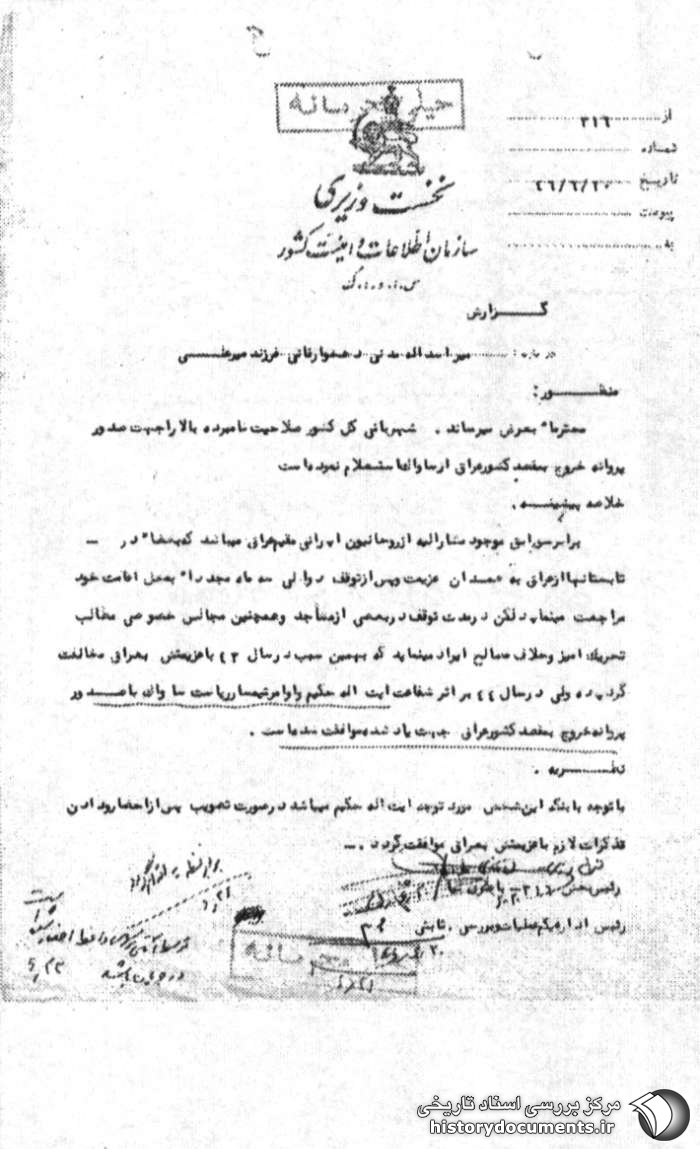 خیلی محرمانه
نخست وزیری
سازمان اطلاعات و امنیت کشور
س.ا.و.ا.ک
از ۳۱۶
شماره
تاریخ ۴۶/۶/۲۰
پیوست
به
گزارش
درباره : میر اسداله مدنی دهخوارقانی فرزند میرعلی
منظور :
محترما" بعرض میرساند . شهربانی کل کشور صلاحیت نامبرده بالا را جهت صدور
پروانه خروج بمقصد کشور عراق از ساواک استعلام نموده است
خلاصه پیشینه .
برابر سوابق موجود مشارالیه از روحانیون ایرانی مقیم عراق میباشد که بعضا" در —
تابستانها از عراق به همدان عزیمت و پس از توقف دو الی سه ماه مجددا" بمحل اقامت خود
مراجعت مینماید لکن در مدت توقف در بعضی از مساجد و همچنین مجالس خصوصی مطالب
تحریک آمیز و خلاف مصالح ایراد مینماید که بهمین سبب در سال ۴۳ با عزیمتش بعراق مخالفت
گردیده ولی در سال ۴۴ بر اثر شفاعت ایت اله حکیم و اوامر تیمسار ریاست ساواک با صدور
پروانه خروج بمقصد کشور عراق جهت یاد شده موافقت شده است .
نظریه .
با توجه باینکه این شخص مورد توجه ایت اله حکیم میباشد در صورت تصویب پس از احضار و دادن
تذکرات لازم با عزیمتش بعراق موافقت گردد . —
رئیس بخش ۳۱۶
رئیس اداره یکم عملیات و بررسی . ثابتی
محرمانه
مرکز بررسی اسناد تاریخی
historydocuments.ir